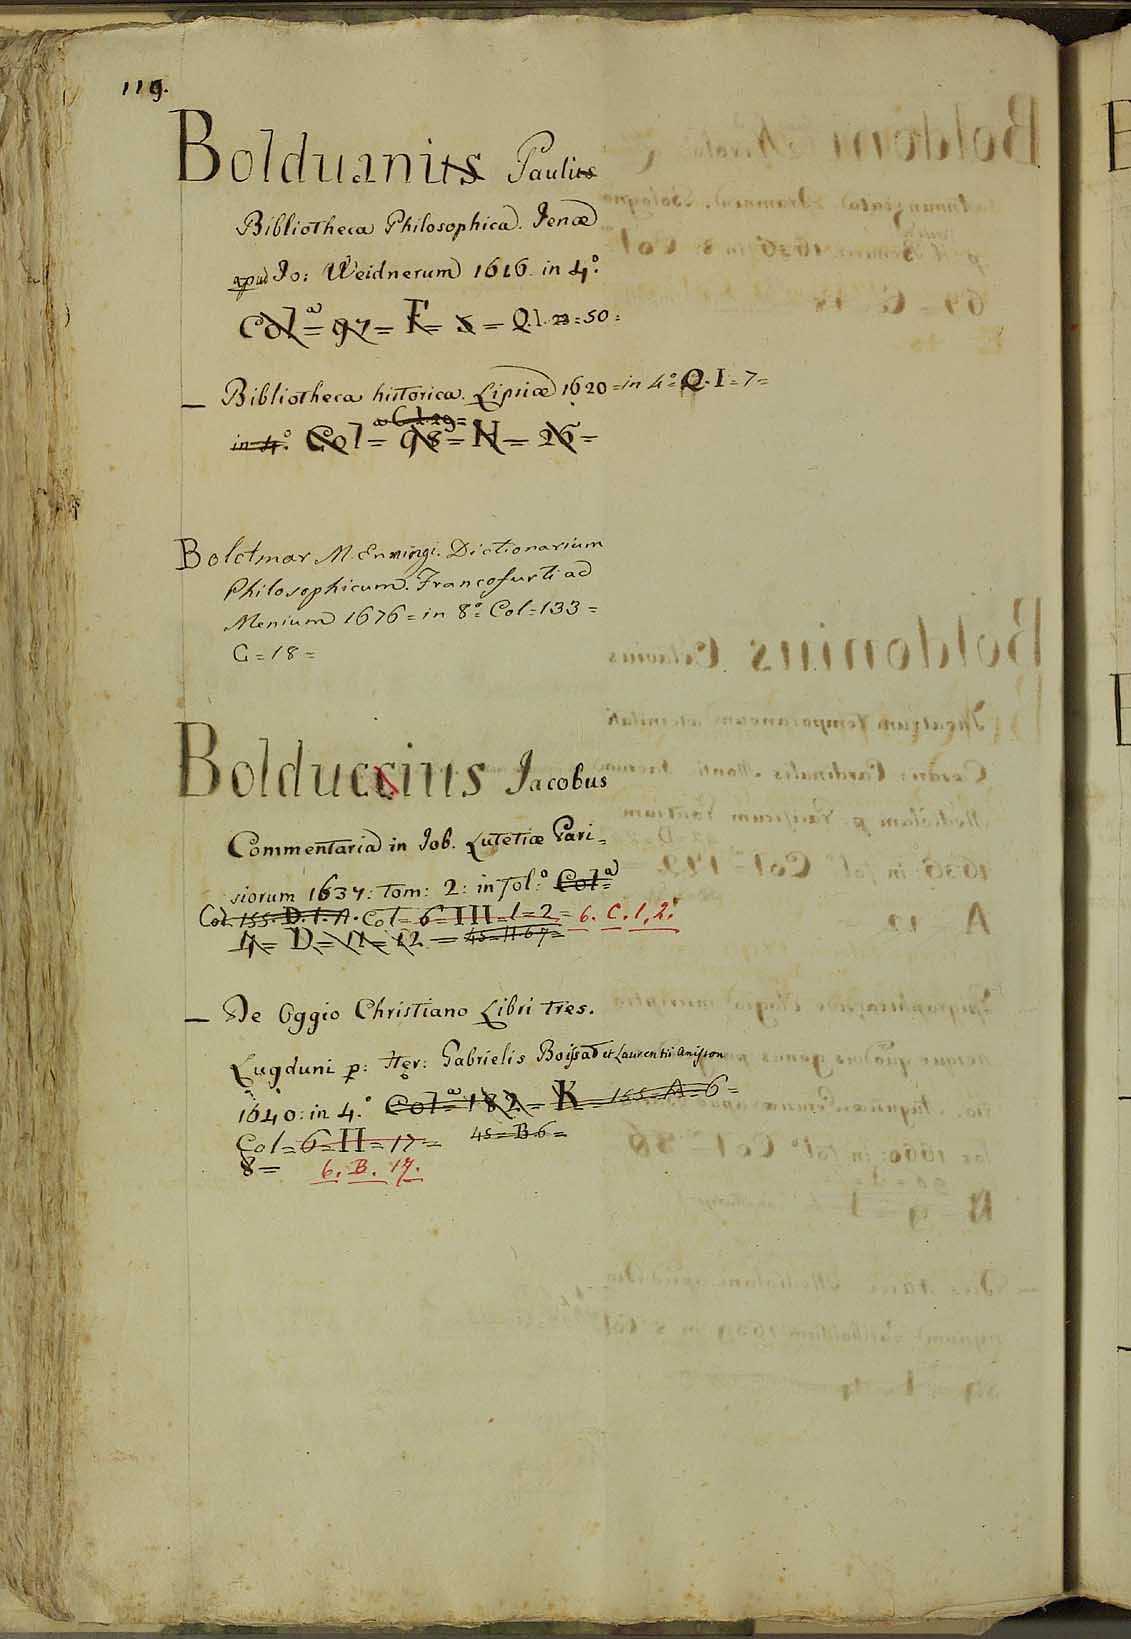 119.
Bolduanius Paulus
Bibliotheca Philosophica. Jenæ
apud Jo: Weidnerum 1616. in 4.º
Colª = 97 = F = 5 = Q. I. = 50 =
— Bibliotheca historica. Lipsiæ 1620 = in 4º = Q. I = 7 =
in 4.º Col = 98 = N = 26 =
Boldmar M. Enningi. Dictionarium
Philosophicum. Francofurti ad
Menium 1676 = in 8º = Col = 133 =
G = 18 =
Bolduccius Jacobus
Commentaria in Job. Lutetiæ Pari-
siorum 1637: Tom: 2: in fol:º Colª =
Col. 155. D. 1. A. Col = 6 = III = 1 = 2 = 6. C. 1. 2.
4 = D = 11 = 12 = 45 = H 67 =
— De Oggio Christiano Libri tres.
Lugduni p: Hær: Gabrielis Boissat et Laurentii Anisson
1640: in 4.º Colª = 182 = K = 155 = A = 6 =
Col = 6 = II = 17 = 45 = B 6 =
8 = 6. B. 17.